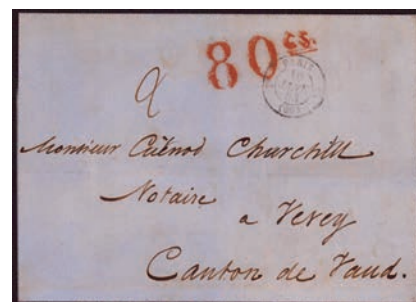 80 cs.
PARIS
2
Monsieur Cuénod Churchill
Notaire
a Vevey
Canton de Vaud.